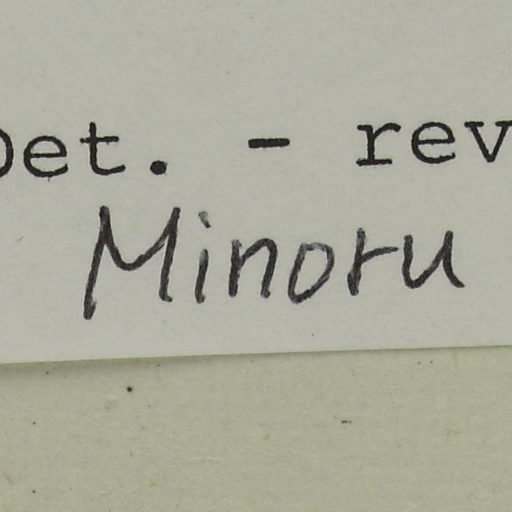 Det. - rev
Minoru